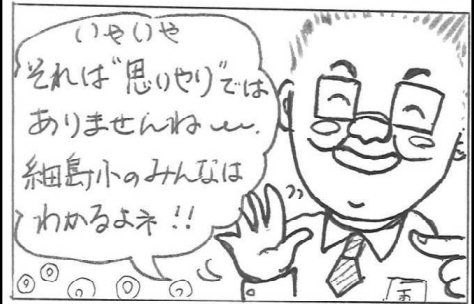 いやいや
それは"思いやり"では
ありませんね〜。
細島小のみんなは
わかるよネ!!